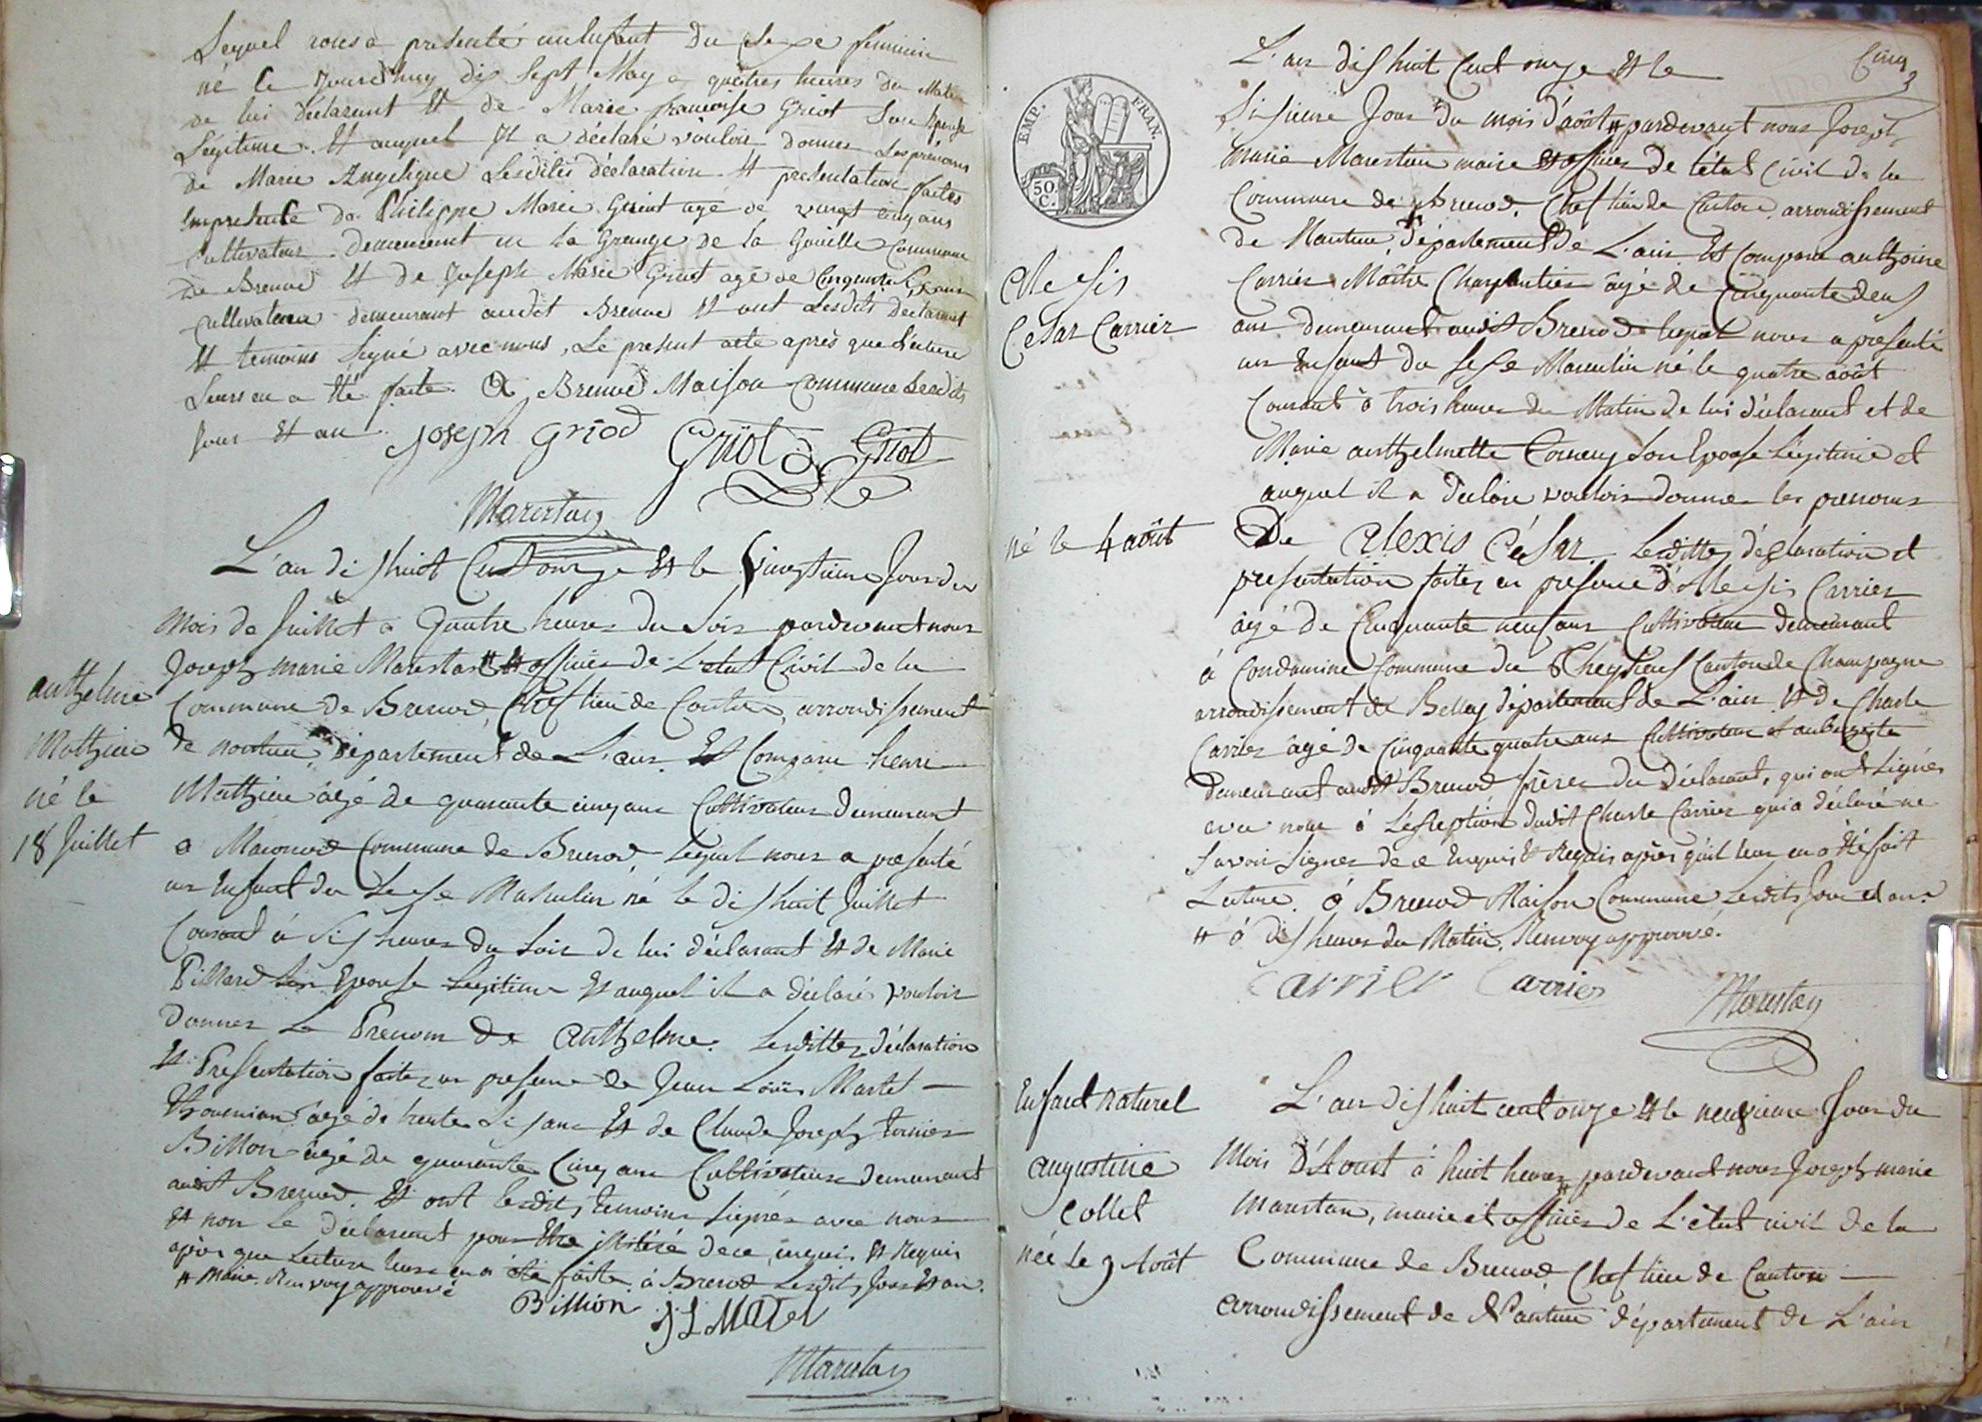 Lequel nous a presenté un Enfant Du Sexe feminin
né Ce Jourdhuy dix Sept May a quatres heures du Matin
de lui Déclarant Et de Marie francoise Griot Son Epouse
Légitime. Et auquel Il a déclaré vouloir donner Les prénoms
de Marie Angelique Lesdites déclaration Et presentation faites
En presence de Philippe Marie Griot agé de vingt cinq ans
Cultivateur demeurant en La Grange de la Gouille Commune
De Brenod Et de Joseph Marie Griot agé de Cinquante Six ans
Cultivateur demeurant audit Brenod Et ont Lesdits Declarant
Et temoins Signé avec nous, Le present acte après que Lecture
Leurs en a Eté faite. A Brenod Maison Commune Lesdits
Jour Et an
Joseph Griod Griot Griot
Marestan
L'an dishuit Cent onze Et le Vingtieme Jour du
Mois de Juillet a Quatre heures du Soir pardevant nous
Joseph marie Marestan # Et officier de L'etat Civil de la
Commune de Brenod, Chef lieu de Canton, arrondissement
de nantua, Département de L'ain Est Comparu henri
Mathieu âgé de quarante cinq ans Cultivateur demeurant
a Maconod Commune de Brenod Lequel nous a présenté
un Enfant du Sexe Masculin né le dishuit Juillet
Courant à Six heures du Soir de lui déclarant Et de Marie
Pillard Son Epouse Legitime Et auquel il a déclaré vouloir
Donner Le Prenom de Anthelme. Lesdittes déclaration
Et Présentation faites en presence de Jean Louis Martel
âgé de trente Six ans Et de Claude Joseph Tornier
Billion âgé de quarante Cinq ans Cultivateurs demeurant
audit Brenod. Et ont lesdits, temoins Signés avec nous
Et non Le Déclarant pour Etre illitéré de ce enquis Et Requis
après que Lecture leurs en a été faite à Brenod Lesdits Jour Et an.
# Maire. Renvoy approuvé
Billion J L Matel
Marestan
anthelme
Mathieu
né le
18 Juillet
Cinq
EMP. FRAN.
50 C.
L'an dishuit Cent onze Et le
Sisieme Jour du mois d'août # pardevant nous Joseph
Marie Marestan maire Et officier de l'état Civil de la
Commune de Brenod, Chef lieu de Canton, arrondissement
de Nantua, Département de L'ain Est Comparu anthoine
Carrier Maître Charpentier âgé de Cinquante deux
ans demeurant audit Brenod lequel nous a présenté
un Enfant du Sexe Masculin né le quatre août
Courant à trois heures du Matin de lui déclarant et de
Marie anthelmette Son Epouse Légitime et
auquel il a Déclaré vouloir donner les prenoms
De Alexis César. Lesdittes déclaration et
présentation faites en présence d'Alexis Carrier
âgé de Cinquante neuf ans Cultivateur demeurant
à Condamine Commune de Cheysieux Canton de Champagne
arrondissement de Belley département de L'ain Et de Charle
Carrier âgé de cinquante quatre ans Cultivateur et aubergiste
Demeurant audit Brenod frères du Déclarant, qui ont Signés
avec nous à L'exception dudit Charle Carrier qui a déclaré ne
Savoir Signer de ce Enquis Et Requis après quil leur en a Eté fait
Lecture. à Brenod Maison Commune Lesdits Jour et an.
# à dix heures du Matin. Renvoy approuvé.
Carrier Carrier
Marestan
Alesis
César Carrier
né le 4 août
Enfant Naturel
augustine
Collet
née Le 9 Août
L'an dishuit cent onze Et le neuvieme Jour du
Mois D'Aoust à huit heures # pardevant nous Joseph marie
Marestan, maire et officier de L'état civil de la
Commune de Brenod Chef lieu de Canton
arrondissement de Nantua département de L'ain